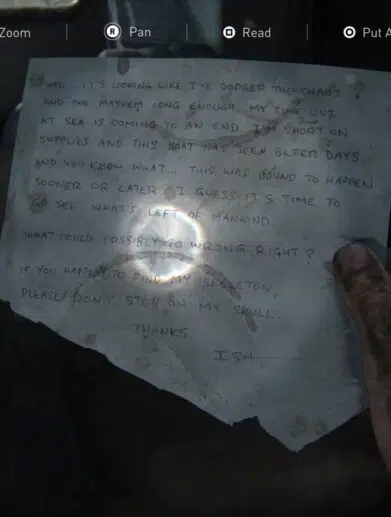 Zoom R Pan Read Put A
WELL.. IT'S LOOKING LIKE I'VE DODGED THE CHAOS
AND THE MAYHEM LONG ENOUGH. MY TIME OUT
AT SEA IS COMING TO AN END. I'M SHORT ON
SUPPLIES AND THIS BOAT HAS SEEN BETTER DAYS.
AND YOU KNOW WHAT... THIS WAS BOUND TO HAPPEN
SOONER OR LATER. I GUESS IT'S TIME TO
GO SEE WHAT'S LEFT OF MANKIND.
WHAT COULD POSSIBLY GO WRONG, RIGHT?
IF YOU HAPPEN TO FIND MY SKELETON,
PLEASE DON'T STEP ON MY SKULL.
THANKS,
ISH